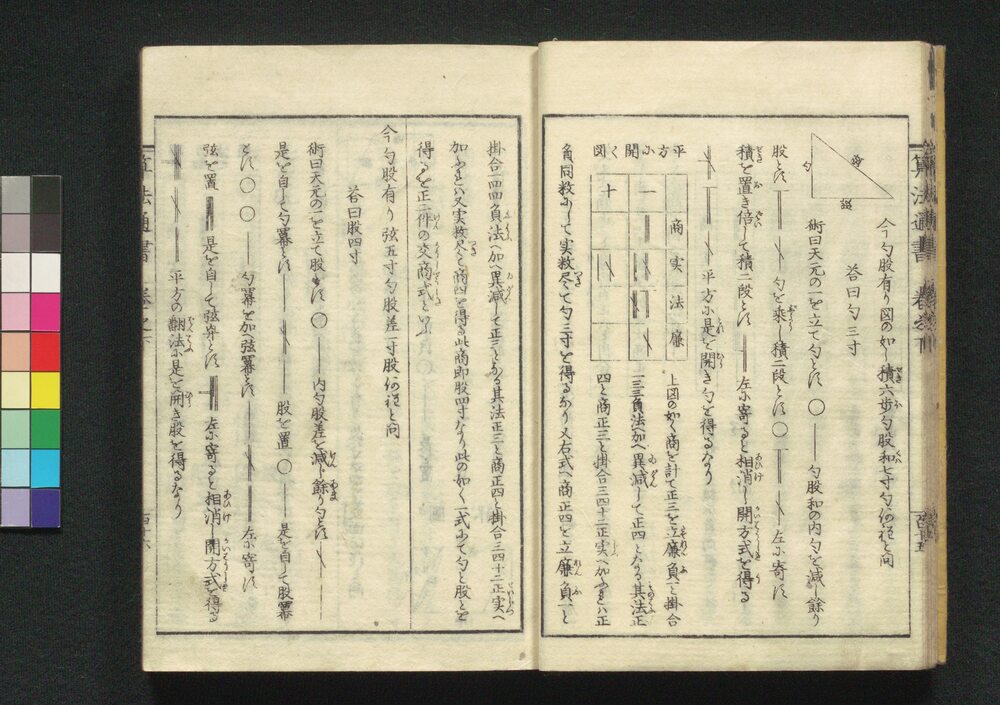 今勾股有り図の如し積六歩勾股和七寸勾何程と問
答曰勾三寸
術曰天元の一を立て勾とす〇一勾股和の内勾を減し餘り
股とす
勾を乗し積二段とす〇
左に寄す
積を置き倍して積二段とす
左に寄ると相消し開方式を得る
平方に是を開き勾を得るなり
平方に開く図
商実法廉
一
十
上図の如く商を計て正三を立廉負一と掛合
一三三負法へ加へ異減して正四となる其法正
四と商正三と掛合三四十二正実へ加ふれハ正
負同数にして実数尽て勾三寸を得るなり又右式へ商正四を立廉負一と
掛合一四四負法へ加へ異減して正三となる其法正三と商正四と掛合三四十二正実へ
加ふれハ又実数尽て商四を得る此商即股四寸なり此の如く一式にて勾と股とを
得るを正二件の交商式といふ
今勾股有り弦五寸勾股差一寸股何程と問
答曰股四寸
術曰天元の一を立て股とす〇一内勾股差を減し餘り勾とす
是を自して勾冪とす
股を置〇一是を自して股冪
とす〇〇一勾冪を加へ弦冪とす
左に寄す
弦を置
是を自して弦冪とす
左に寄ると相消し開方式を得る
平方の翻法に是を開き股を得るなり
算法通書
巻之下
勾
弦
股